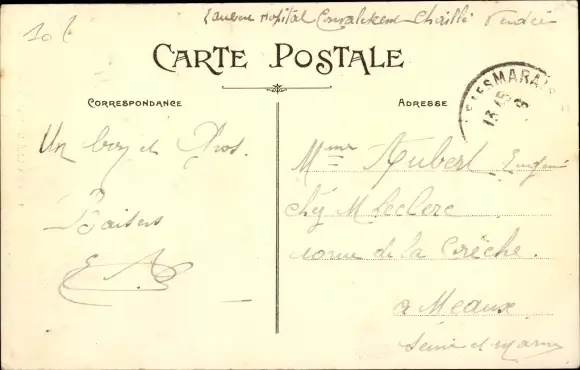 10 f
Hopital Chaillé Vendée
CARTE POSTALE
CORRESPONDANCE
ADRESSE
LES MARAIS
13 15
9
Un bon et Gros
Baisers
EA
Mme Aubert Eugène
chez M Leclerc
de la Crèche.
a Meaux
Seine et marne